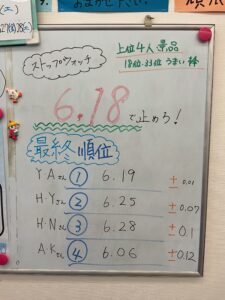 おまかせ下さい
上位4人景品
18位・33位 うまい棒
ストップウォッチ
6.18で止めろ!
最終順位
Y・Aさん ① 6.19 ±0.01
H・Yさん ② 6.25 ±0.07
H・Nさん ③ 6.28 ±0.1
A・Kさん ④ 6.06 ±0.12